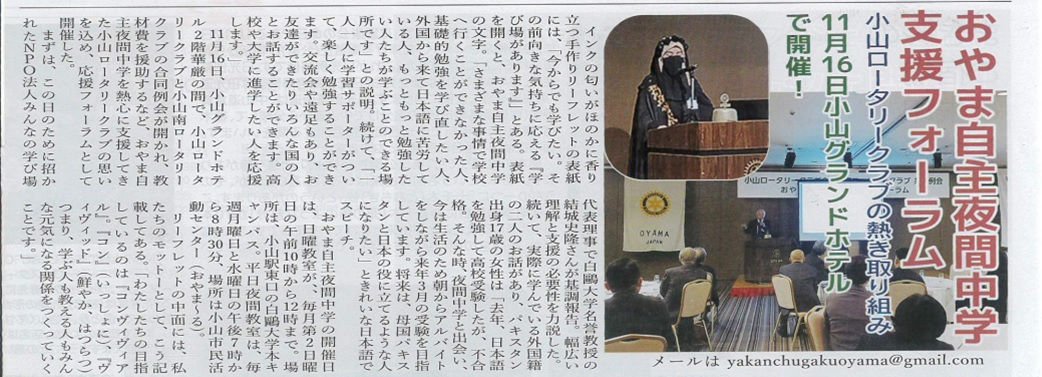 おやま自主夜間中学
支援フォーラム
小山ロータリークラブの熱き取り組み
11月16日小山グランドホテル
で開催！
インクの匂いがほのかに香り
立つ手作りリーフレットの表紙
には、「今からでも学びたい。そ
の前向きな気持ちに応える『学
び場があります』」とある。表紙
を開くと、おやま自主夜間中学
の文字。「さまざまな事情で学校
へ行くことができなかった人、
基礎的勉強を学び直したい人、
外国から来て日本語に苦労して
いる人、もっともっと勉強した
い人たちが学ぶことのできる場
所です」との説明。続けて、「一
人一人に学習サポーターがつい
て、楽しく勉強することができ
ます。交流会や遠足もあり、お
友達ができたりいろんな国の人
とお話することができます。高
校や大学に進学したい人を応援
します。」
11月16日、小山グランドホテ
ル2階華厳の間で、小山ロータ
リークラブと小山南ロータリー
クラブの合同例会が開かれ、教
材費を援助するなど、おやま自
主夜間中学を熱心に支援してき
た小山ロータリークラブの思い
を込め、応援フォーラムとして
開催した。
まずは、この日のために招か
れたNPO法人みんなの学び場
代表理事で白鷗大学名誉教授の
結城史隆さんが基調報告。幅広い
理解と支援の必要性を力説した。
続いて、実際に学んでいる外国籍
の二人のお話があり、パキスタン
出身17歳の女性は「去年、日本語
を勉強して高校受験したが、不合
格。そんな時、夜間中学と出会い、
今は生活のため朝からアルバイト
をしながら来年3月の受験を目指
しています。将来は、母国パキス
タンと日本の役に立てるような人
になりたい」ときれいな日本語で
スピーチ。
おやま自主夜間中学の開催日
は、日曜教室が、毎月第2日曜
日の午前10時から12時まで。場
所は、小山駅東口の白鷗大学本キ
ャンパス。平日夜間教室は、毎
週月曜日と水曜日の午後7時か
ら8時30分、場所は小山市民活
動センター（おやま〜る）。
リーフレットの中面には、私
たちのモットーとして、こう記
載してある。「わたしたちの目指
しているのは『コンヴィヴィア
ル』。『コン』（いっしょに）、『ヴ
ィヴィッド』（鮮やか、はつらつ）
つまり、学ぶ人も教える人もみん
な元気になる関係をつくっていく
ことです。」
小山ロータリー
例会
おや
ラム
OYAMA
JAPAN
メールは yakanchugakuoyama@gmail.com